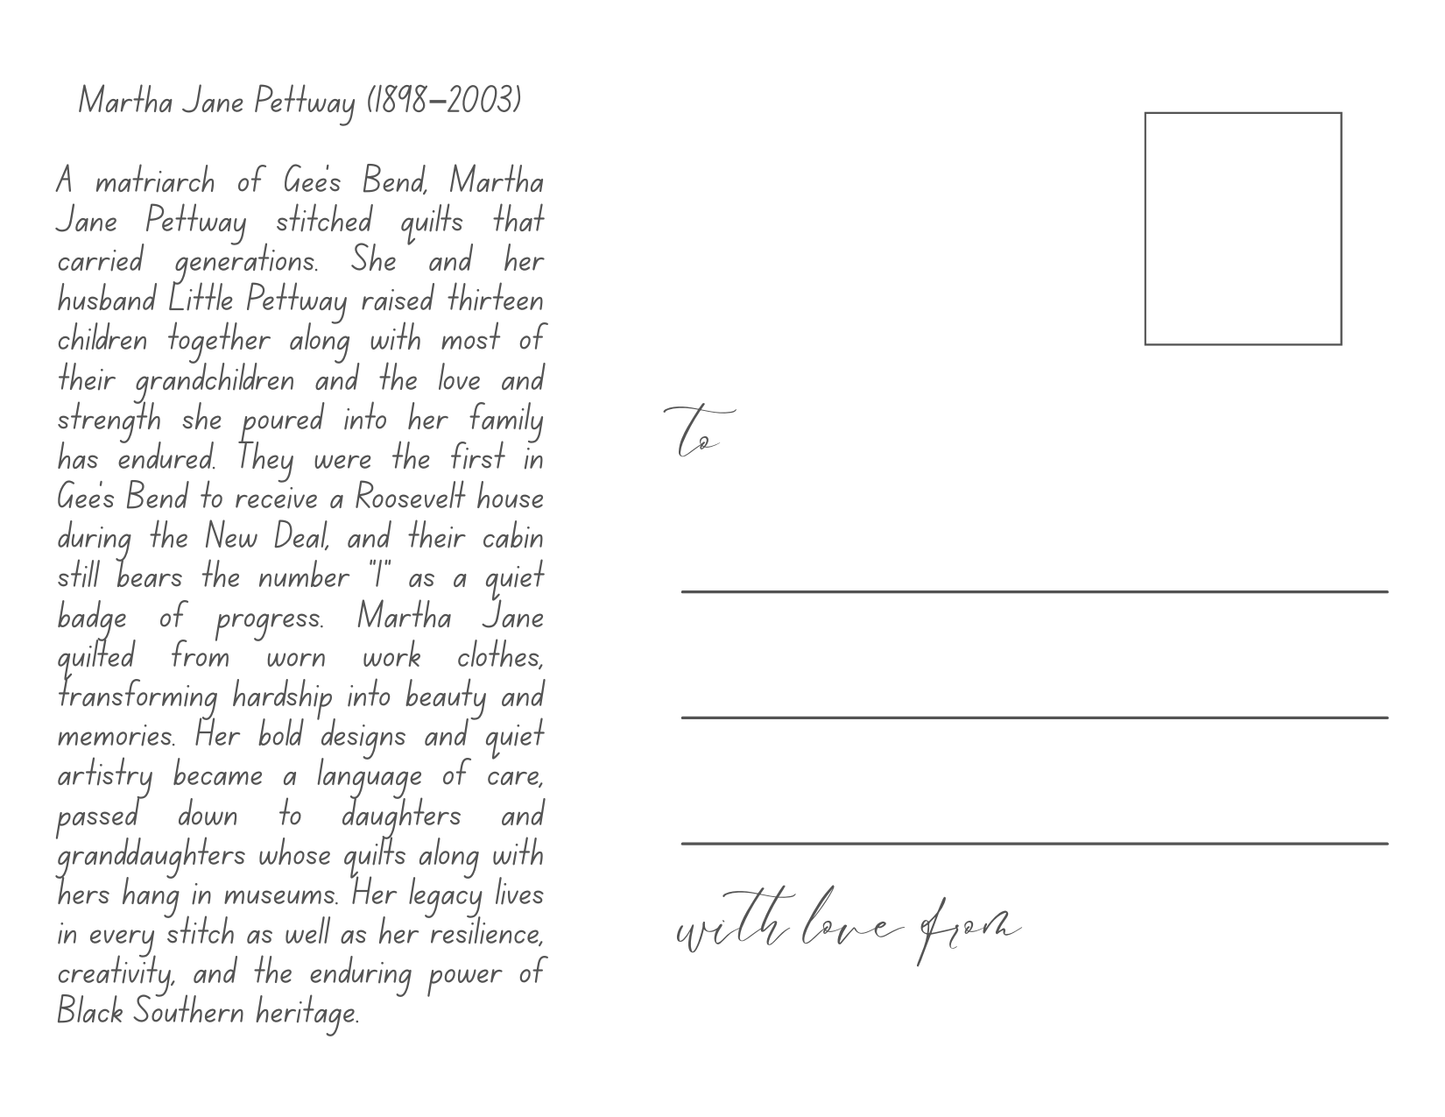 Martha Jane Pettway (1898–2003)
A matriarch of Gee's Bend, Martha
Jane Pettway stitched quilts that
carried generations. She and her
husband Little Pettway raised thirteen
children together along with most of
their grandchildren and the love and
strength she poured into her family
has endured. They were the first in
Gee's Bend to receive a Roosevelt house
during the New Deal, and their cabin
still bears the number "1" as a quiet
badge of progress. Martha Jane
quilted from worn work clothes,
transforming hardship into beauty and
memories. Her bold designs and quiet
artistry became a language of care,
passed down to daughters and
granddaughters whose quilts along with
hers hang in museums. Her legacy lives
in every stitch as well as her resilience,
creativity, and the enduring power of
Black Southern heritage.
to
with love from